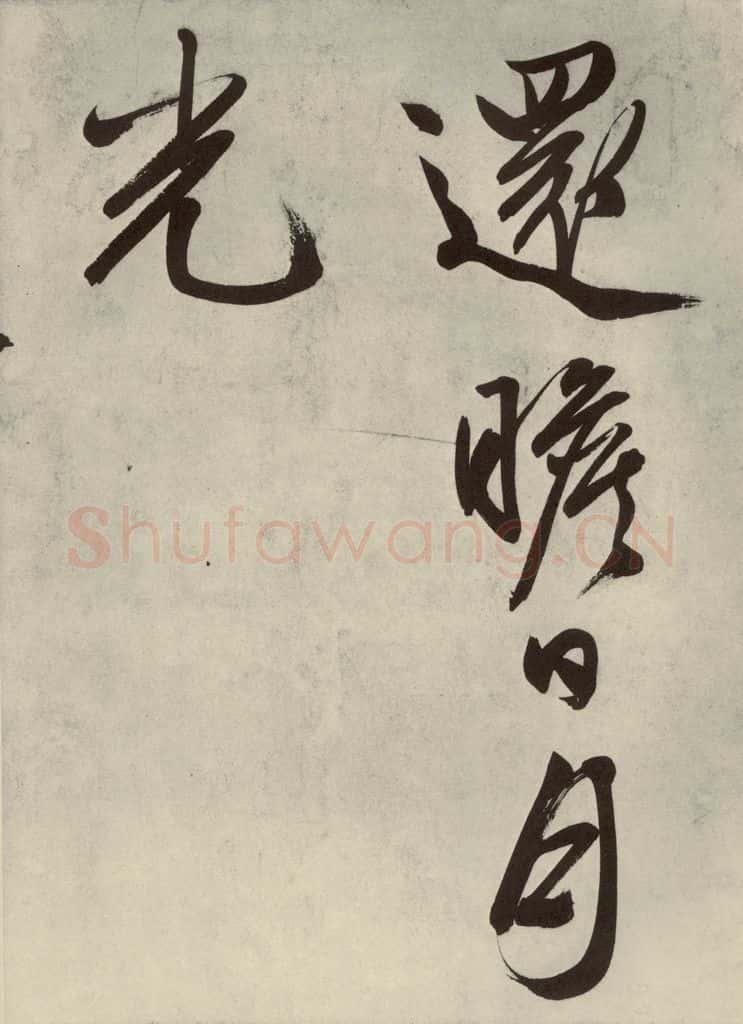 還瞻日月
光
Shufawang.CN